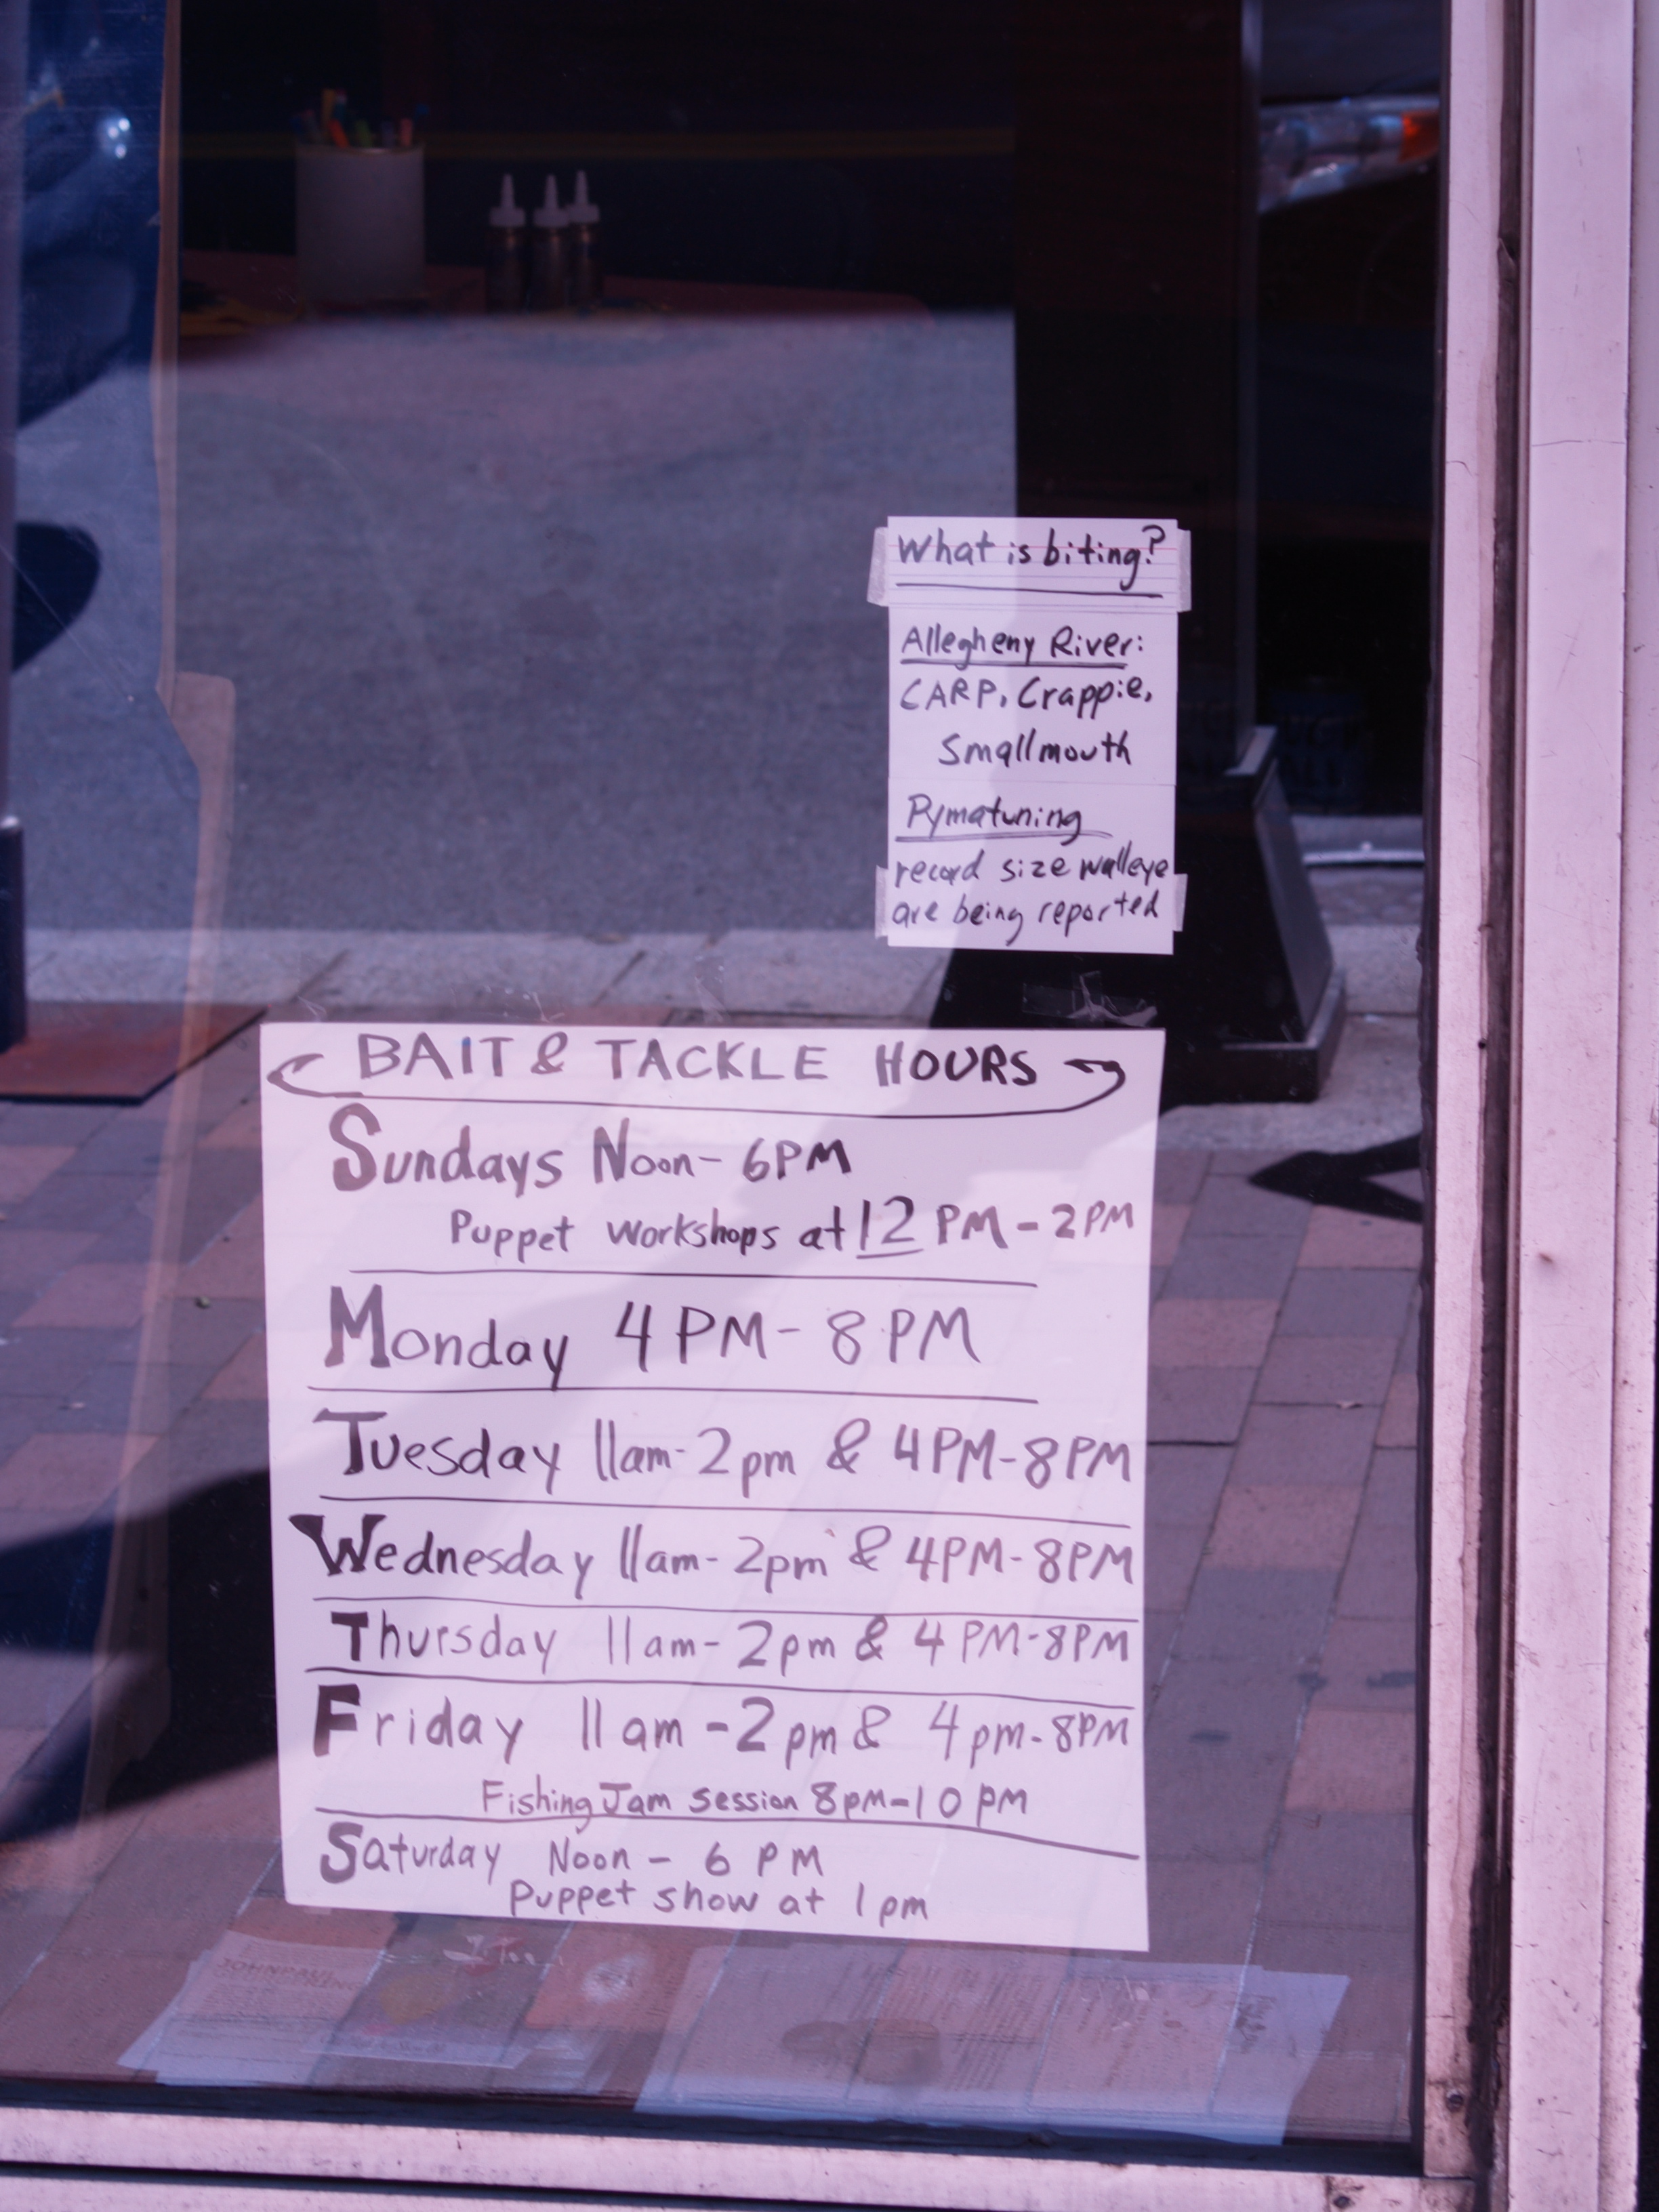 What is biting?
Allegheny River:
CARP, Crappie,
Smallmouth
Pymatuning
record size walleye
are being reported
BAIT & TACKLE HOURS
Sundays Noon - 6PM
Puppet workshops at 12 PM - 2PM
Monday 4 PM - 8 PM
Tuesday 11am - 2pm & 4PM - 8PM
Wednesday 11am - 2pm & 4PM - 8PM
Thursday 11am - 2pm & 4 PM - 8PM
Friday 11am - 2pm & 4pm - 8PM
Fishing Jam session 8pm - 10 pm
Saturday Noon - 6 PM
Puppet show at 1pm
JOHNPAUL